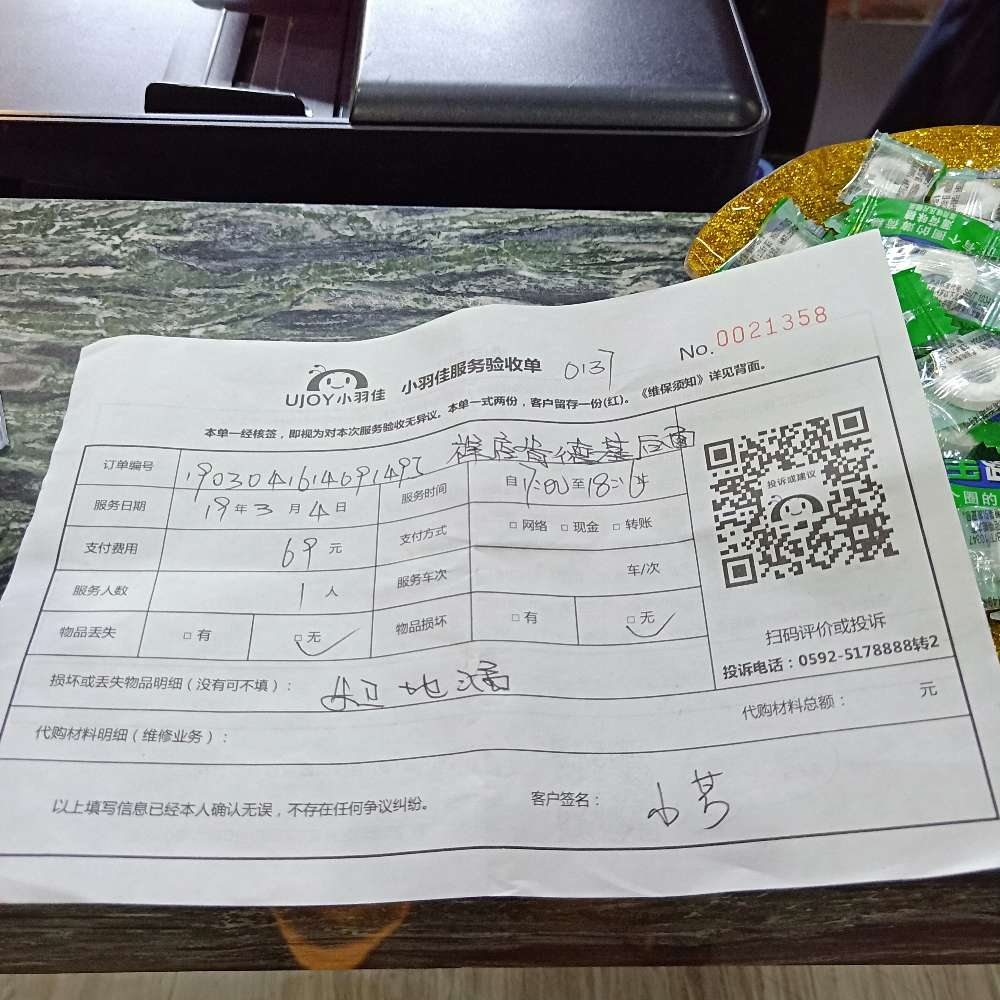 No.0021358
UJOY小羽佳 小羽佳服务验收单 0137
本单一经核签，即视为对本次服务验收无异议。本单一式两份，客户留存一份(红)。《维保须知》详见背面。
订单编号 肯德基后面
服务日期 19年3月4日 服务时间 自17:00至18:
支付费用 69元 支付方式 □网络 □现金 □转账
服务人数 1人 服务车次 车/次
物品丢失 □有 □无 物品损坏 □有 □无
投诉或建议
扫码评价或投诉
投诉电话：0592-5178888转2
损坏或丢失物品明细（没有可不填）： 地漏
代购材料明细（维修业务）： 代购材料总额： 元
以上填写信息已经本人确认无误，不存在任何争议纠纷。 客户签名：
有个圈的薄荷